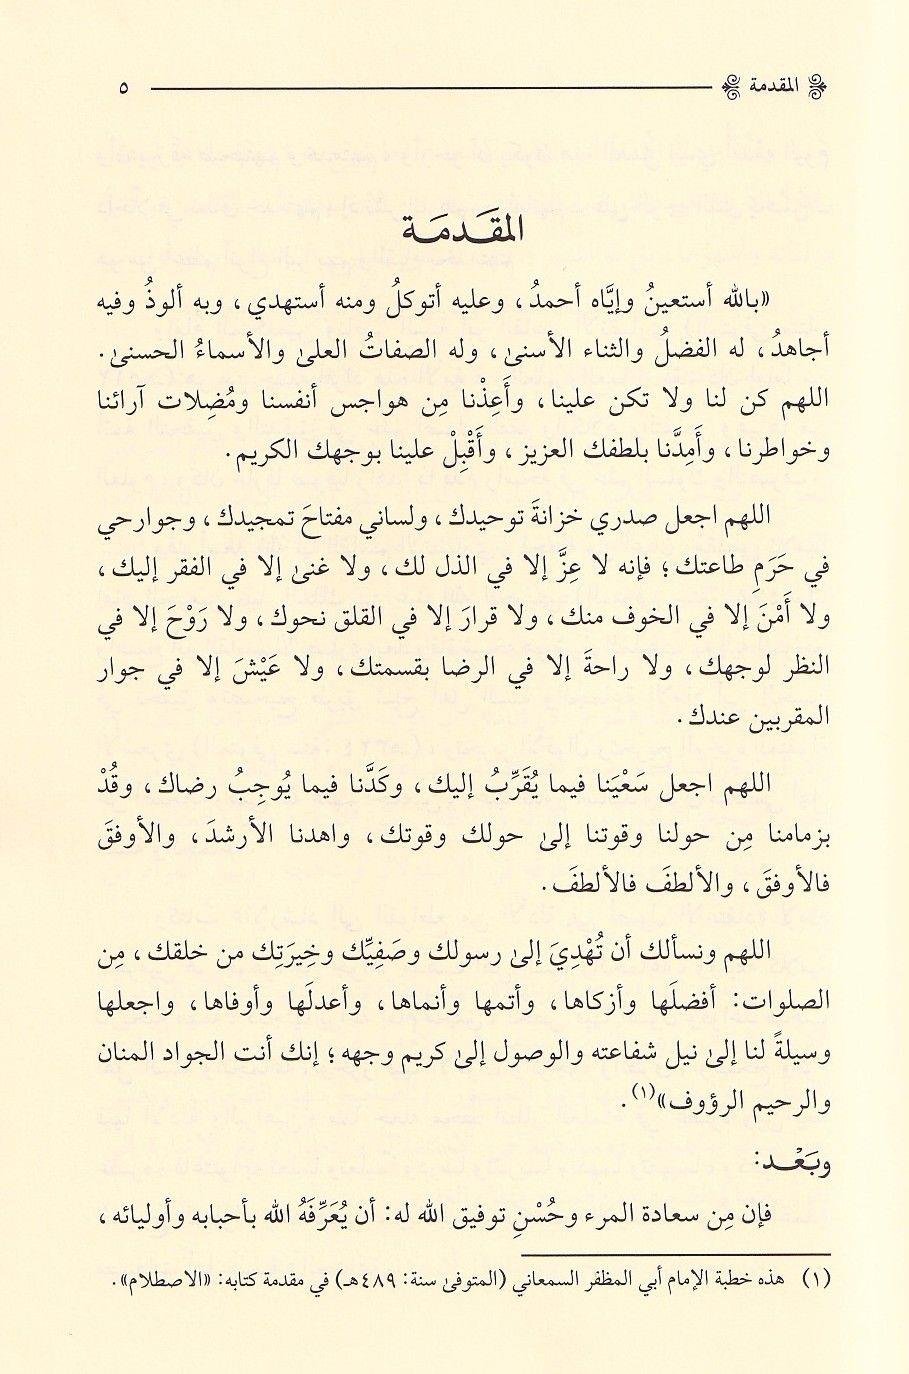 المقدمة ٥
المقَدمَة
«بالله أستعينُ وإيَّاه أحمدُ، وعليه أتوكلُ ومنه أستهدي، وبه ألوذُ وفيه
أجاهدُ، له الفضلُ والثناء الأسنىٰ، وله الصفاتُ العلىٰ والأسماءُ الحسنىٰ.
اللهم كن لنا ولا تكن علينا، وأَعِذْنا مِن هواجس أنفسنا ومُضِلات آرائنا
وخواطرنا، وأَمِدَّنا بلطفك العزيز، وأَقْبِلْ علينا بوجهك الكريم.
اللهم اجعل صدري خزانةَ توحيدك، ولساني مفتاحَ تمجيدك، وجوارحي
في حَرَمِ طاعتك؛ فإنه لا عِزَّ إلا في الذل لك، ولا غنىٰ إلا في الفقر إليك،
ولا أَمْنَ إلا في الخوف منك، ولا قرارَ إلا في القلق نحوك، ولا رَوْحَ إلا في
النظر لوجهك، ولا راحةَ إلا في الرضا بقسمتك، ولا عَيْشَ إلا في جوار
المقربين عندك.
اللهم اجعل سَعْيَنا فيما يُقَرِّبُ إليك، وكَدَّنا فيما يُوجِبُ رضاك، وقُدْ
بزمامنا مِن حولنا وقوتنا إلىٰ حولك وقوتك، واهدنا الأرشدَ، والأوفقَ
فالأوفقَ، والألطفَ فالألطفَ.
اللهم ونسألك أن تُهْدِيَ إلىٰ رسولك وصَفِيِّك وخِيرَتِك من خلقك، مِن
الصلوات: أفضلَها وأزكاها، وأتمها وأنماها، وأعدلَها وأوفاها، واجعلها
وسيلةً لنا إلىٰ نيل شفاعته والوصول إلىٰ كريم وجهه؛ إنك أنت الجواد المنان
والرحيم الرؤوف»(١).
وبَعْد:
فإن مِن سعادة المرء وحُسْنِ توفيق الله له: أن يُعَرِّفَهُ الله بأحبابه وأوليائه،
(١) هذه خطبة الإمام أبي المظفر السمعاني (المتوفىٰ سنة: ٤٨٩هـ) في مقدمة كتابه: «الاصطلام».